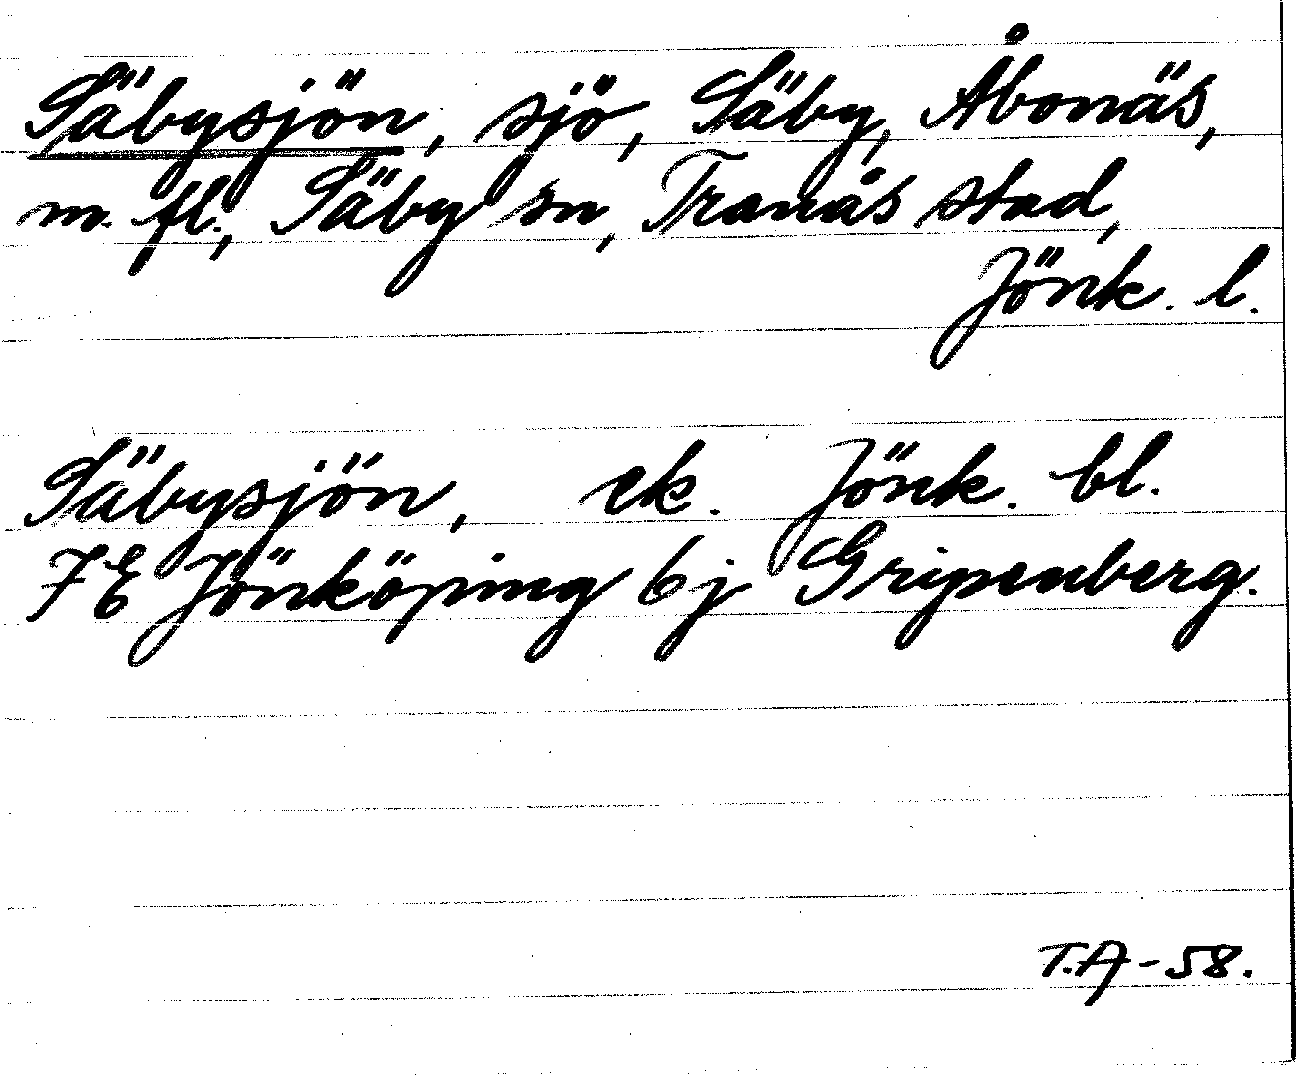 Säbysjön, sjö, Säby, Åbonäs,
m. fl., Säby sn, Tranås stad,
Jönk. l.
Säbysjön, ek. Jönk. bl.
7E Jönköping 6j Gripenberg.
T.A-58.